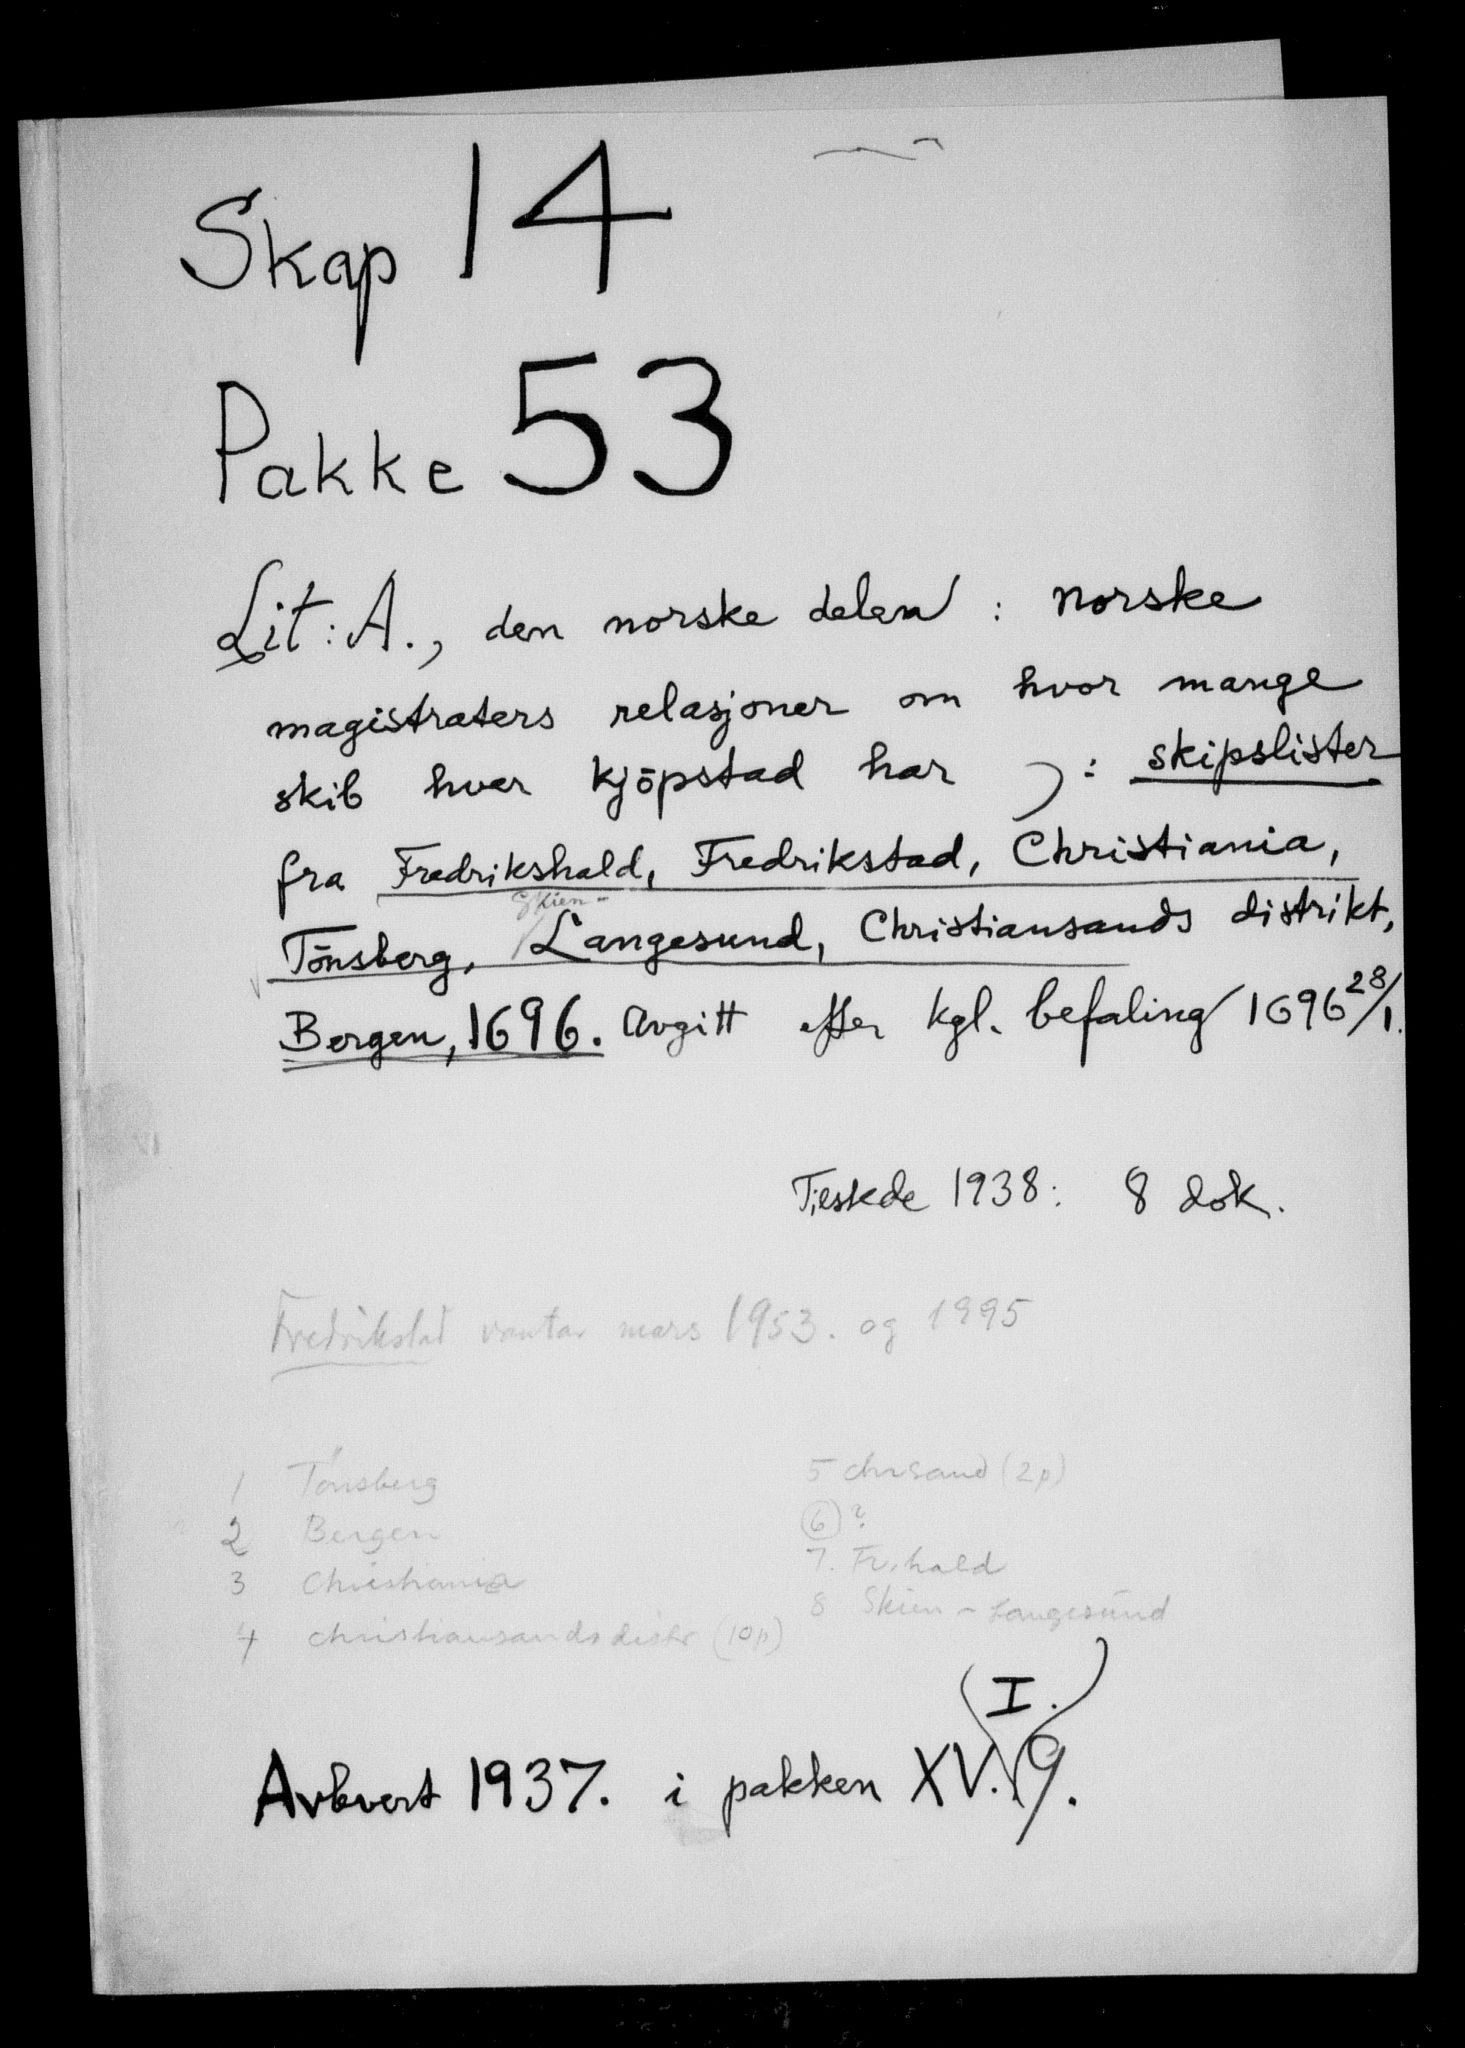 Skap 14
Pakke 53
Lit: A., den norske delen : norske
magistraters relasjoner om hvor mange
skib hver kjöpstad har ɔ: skipslister
fra Fredrikshald, Fredrikstad, Christiania,
Skien-
Tönsberg, Langesund, Christiansands distrikt,
Bergen, 1696. Avgitt efter kgl. befaling 1696 28/1.
1938: 8 dok.
Fredrikstad vantar mars 1953. og 1995
1 Tönsberg
2 Bergen
3 Christiania
4 Christiansands distr (10p)
5 Chrsand (2p)
6 ?
7. Fr.hald
8 Skien - Langesund
(I.)
1937. i pakken XV. 9.